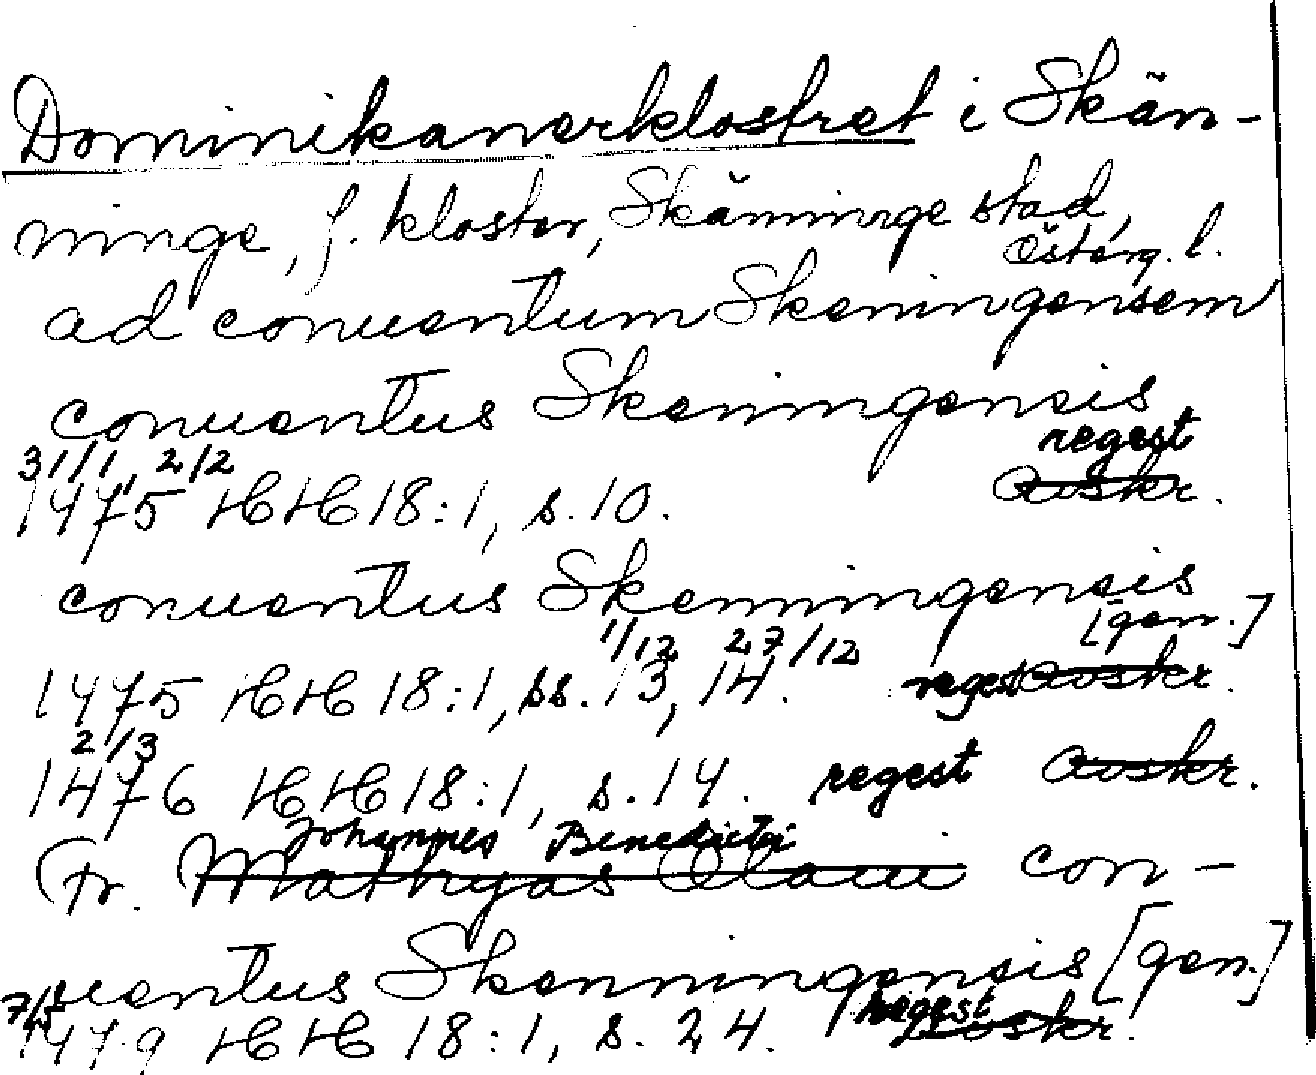 Dominikanerklostret i Skän-
ninge, f. kloster, Skänninge stad,
Österg. l.
ad conuentum Skeningensem
conuentus Skeningensis
31/1, 2/2 regest
1475 HH 18:1, s. 10. avskr.
conuentus Skenningensis
1/12 27/12 [gen.]
1475 HH 18:1, ss. 13, 14. regest avskr.
2/3
1476 HH 18:1, s. 14. regest avskr.
Johannes Benedicti
Fr. Mathyas Olaui con-
uentus Skenningensis [gen.]
regest
1479 HH 18:1, s. 24. avskr.